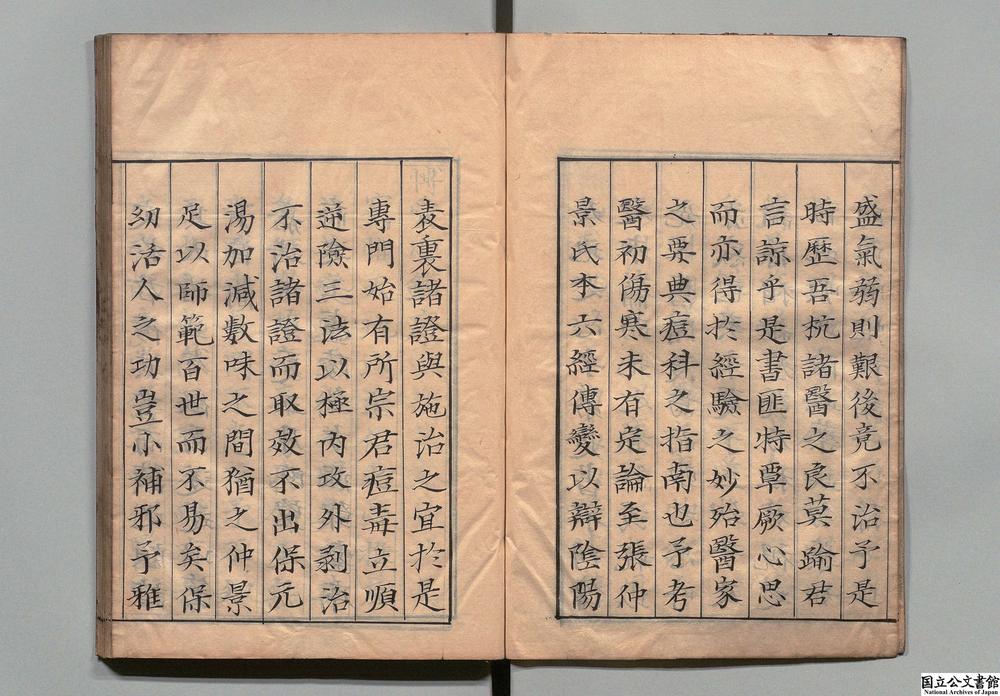 盛氣弱則艱後竟不治予是
時歷吾杭諸醫之良莫踰君
言諒乎是書匪特覃厥心思
而亦得於經驗之妙殆醫家
之要典痘科之指南也予考
醫初傷寒未有定論至張仲
景氏本六經傳變以辯陰陽
表裏諸證與施治之宜於是
專門始有所宗君痘毒立順
逆險三法以極內攻外剥治
不治諸證而取效不出保元
湯加減數味之間猶之仲景
足以師範百世而不易矣保
幼活人之功豈小補邪予雅
国立公文書館
National Archives of Japan